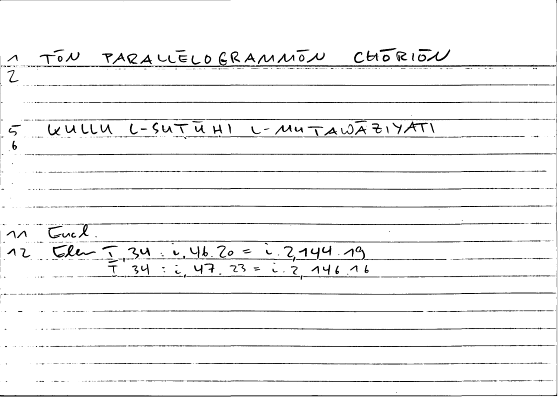 1 TŌN PARALLĒLOGRAMMŌN CHŌRIŌN
2
5 KULLU L-SUṬŪHI L-MUTAWĀZIYATI
6
11 Eucl.
12 Elem I, 34 : i, 46.20 = i. 2, 144.19
I, 34 : i, 47.23 = i. 2, 146.16